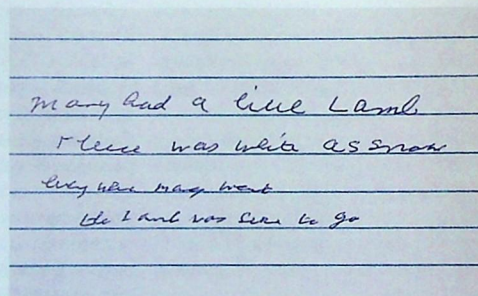 Mary had a little Lamb
Fleece was white as snow
every where mary went
the Lamb was sure to go